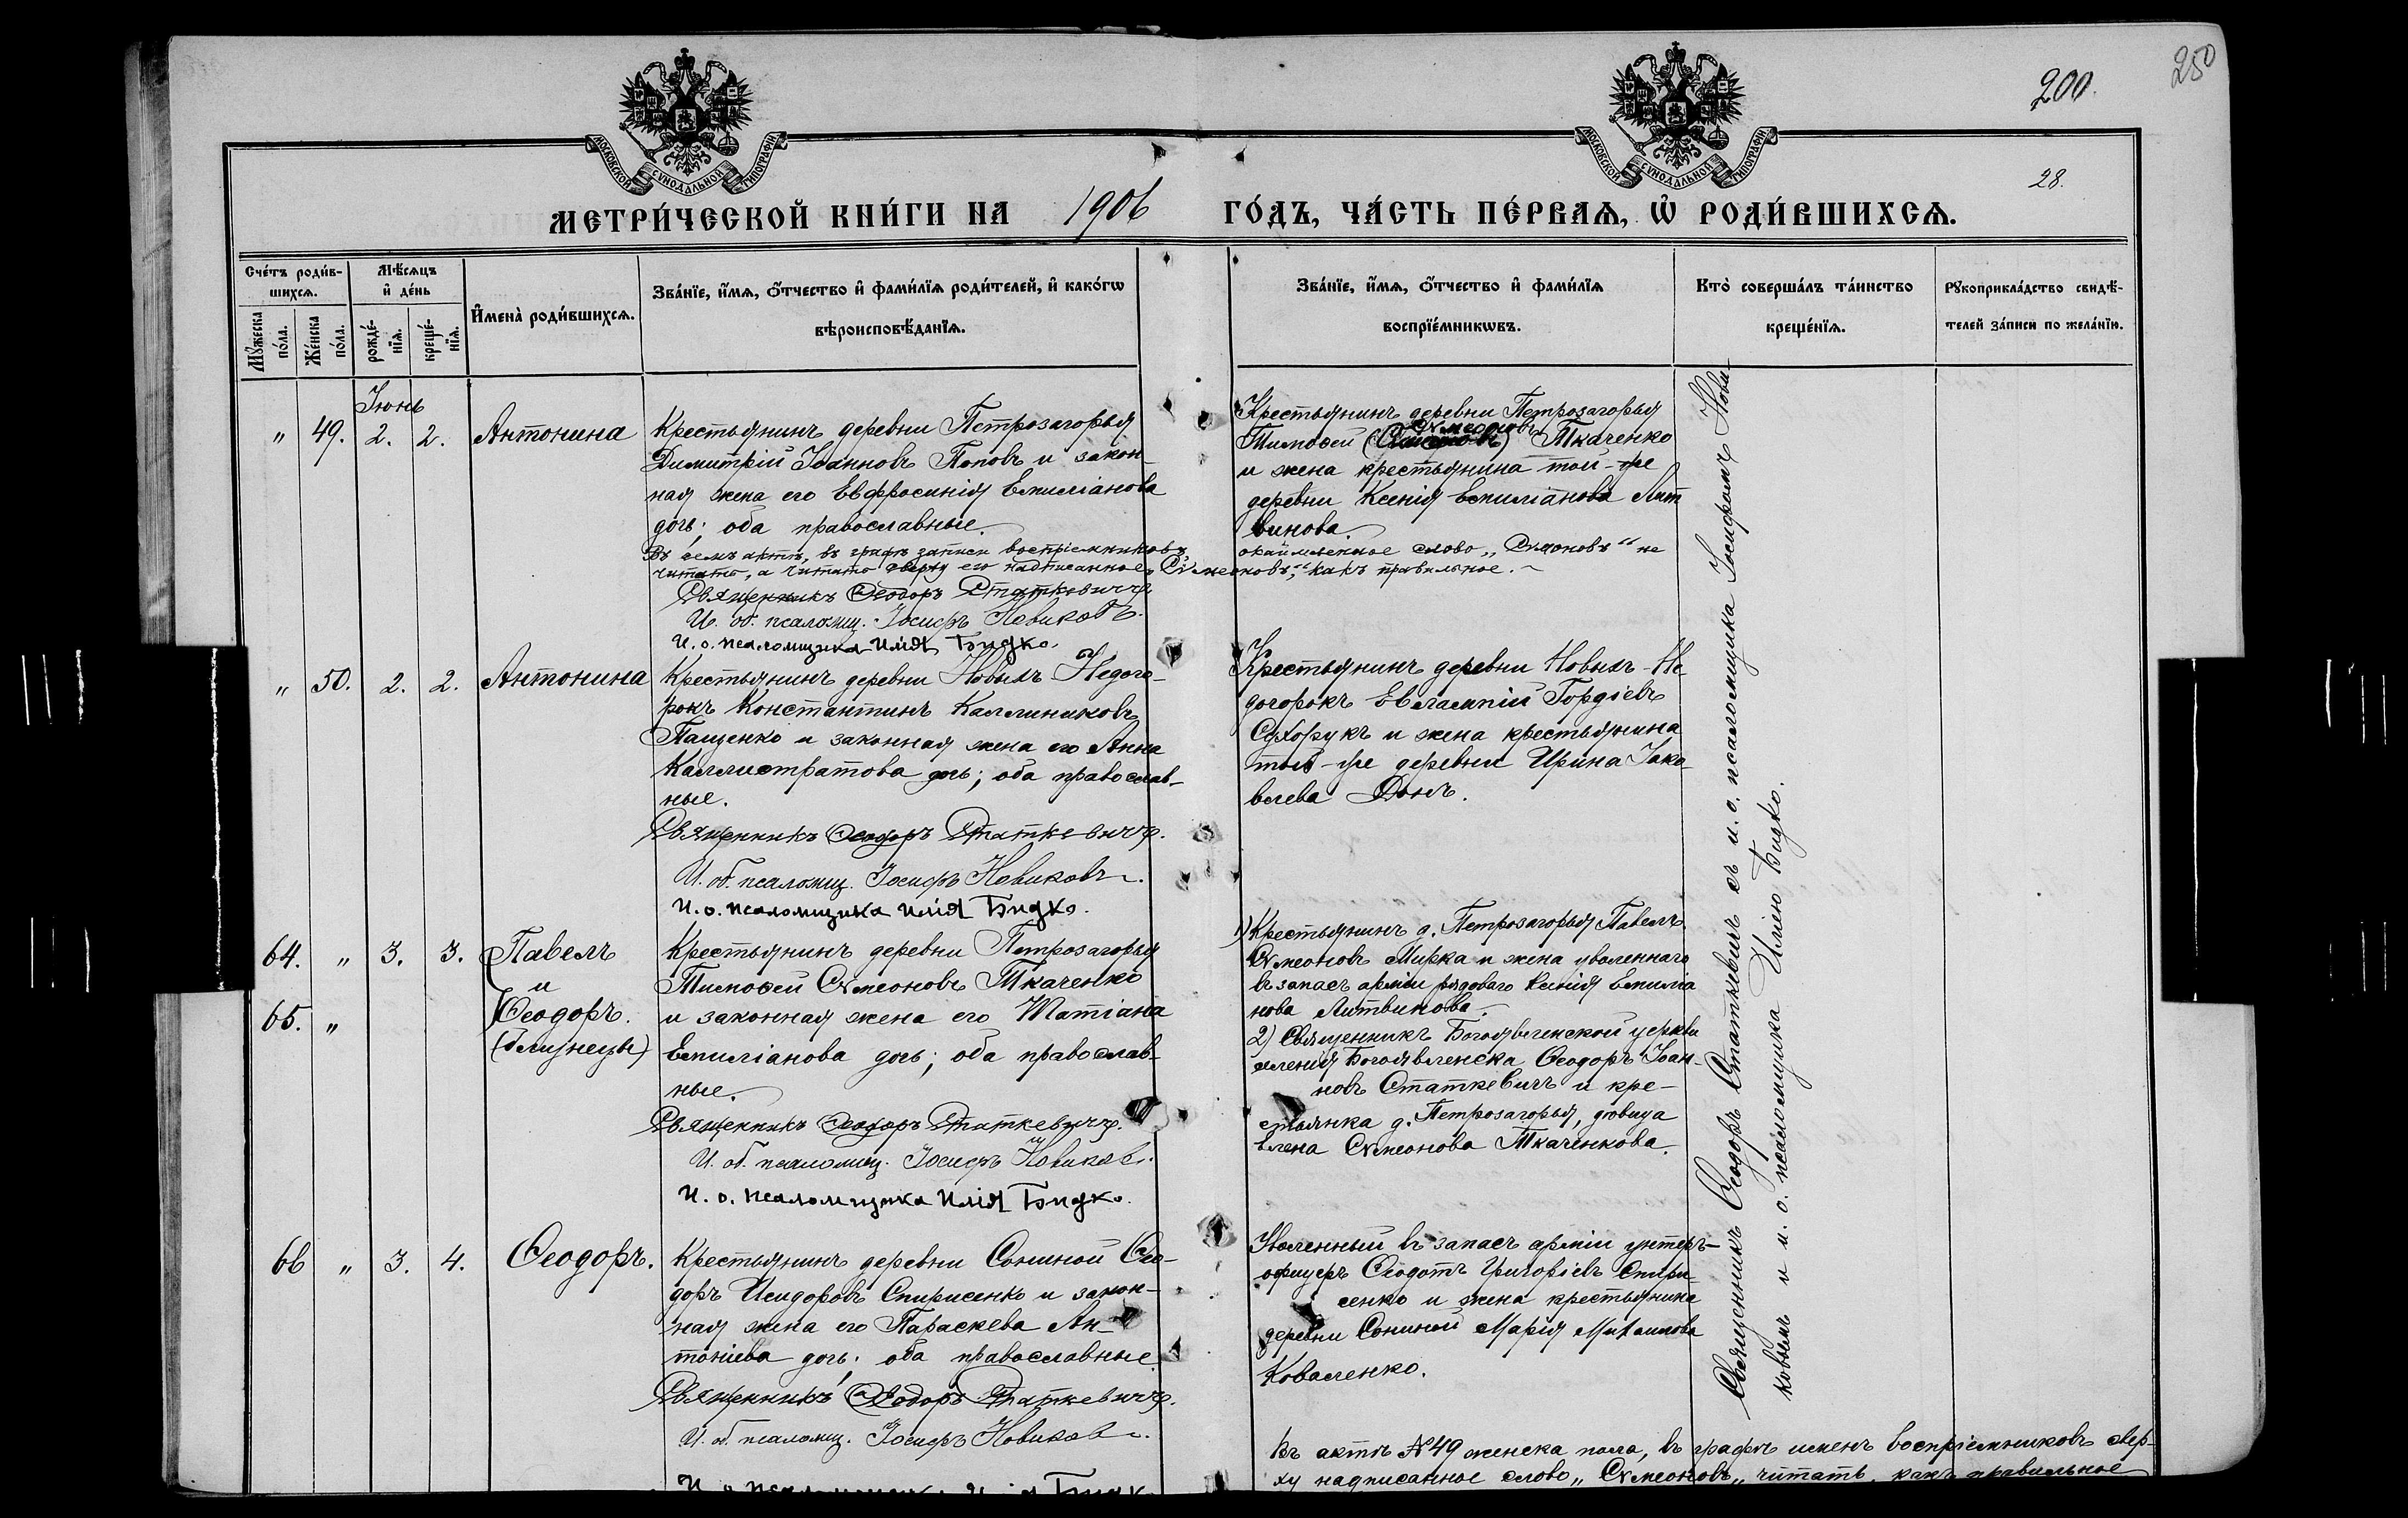 250
200.
МОСКОВСКОЙ СѴНОДАЛЬНОЙ ТИПОГРАФІИ
МОСКОВСКОЙ СѴНОДАЛЬНОЙ ТИПОГРАФІИ
28.
МЕТРИ́ЧЕСКОЙ КНИ́ГИ НА 1906 ГО́ДЪ, ЧА́СТЬ ПЕ́РВАѦ, Ѡ҆ РОДИ́ВШИХСѦ.
Сче́тъ роди́в-
шихсѧ.
Мꙋ́жеска
по́ла.
Же́нска
по́ла.
Мѣ́сѧцъ
и҆ де́нь
рожде́-
нїѧ.
креще́-
нїѧ.
И҆мена̀ роди́вшихсѧ.
Зва́нїе, и҆́мѧ, ѻ҆́тчество и҆ фами́лїѧ роди́телей, и҆ како́гѡ
вѣроисповѣ́данїѧ.
Зва́нїе, и҆́мѧ, ѻ҆́тчество и҆ фами́лїѧ
воспрїе́мникѡвъ.
Кто̀ соверша́лъ та́инство
креще́нїѧ.
Рꙋкоприкла́дство свидѣ́-
телей за́писи по жела́нїю.
Іюнь
" 49. 2. 2. Антонина
Крестьянинъ деревни Петрозагорья
Димитрій Іоанновъ Поповъ и закон-
ная жена его Евфросинія Емиліанова
дочь; оба православные.
Въ семъ актѣ, въ графѣ записи воспріемниковъ,
читать, а читать сверху его надписанное „Сѵмеоновъ", какъ правильное.
Священникъ Ѳеодоръ Статкевичъ.
И. об. псаломщ. Іосифъ Новиковъ.
И. о. псаломщика Илія Бидко.
Крестьянинъ деревни Петрозагорья
Сѵмеоновъ
Тимоѳей Ткаченко
и жена крестьянина той-же
деревни Ксенія Емиліанова Лит
винова.
окаймленное слово „Симоновъ" не
" 50. 2. 2. Антонина
Крестьянинъ деревни Новыхъ Недого-
рокъ Константинъ Каллиниковъ
Пащенко и законная жена его Анна
Каллистратова дочь; оба православ-
ные.
Священникъ Ѳеодоръ Статкевичъ.
И. об. псаломщ. Іосифъ Новиковъ.
И. о. псаломщика Илія Бидко.
Крестьянинъ деревни Новыхъ-Не-
догорокъ Евлампій Гордіевъ
Сухорукъ и жена крестьянина
той-же деревни Ирина Іако-
влева
64. " 3. 3. Павелъ
и
65. " Ѳеодоръ.
(близнецы)
Крестьянинъ деревни Петрозагорья
Тимоѳей Сѵмеоновъ Ткаченко
и законная жена его Татіана
Емиліанова дочь; оба православ-
ные.
Священникъ Ѳеодоръ Статкевичъ.
И. об. псаломщ. Іосифъ Новиковъ.
И. о. псаломщика Илія Бидко.
1) Крестьянинъ д. Петрозагорья Павелъ
Сѵмеоновъ Мирка и жена уволеннаго
въ запасъ арміи рядоваго Ксенія Емилiа
нова Литвинова.
2) Священникъ Богоявленской церкви
селенія Богоявленска Ѳеодоръ Іоан-
новъ Статкевичъ и кре-
стьянка д. Петрозагорья, дѣвица
Елена Сѵмеонова Ткаченкова.
66 " 3. 4. Ѳеодоръ.
Крестьянинъ деревни Сониной Ѳео-
доръ Исидоровъ Спирисенко и закон-
ная жена его Параскева Ан-
тоніева дочь; оба православные.
Священникъ Ѳеодоръ Статкевичъ.
И. об. псаломщ. Іосифъ Новиковъ.
И. о. псаломщика Илія Бидко
Уволенный въ запасъ арміи унтеръ-
офицеръ Ѳеодотъ Григоріевъ Спири-
сенко и жена крестьянина
деревни Сониной Марія Михаилова
Коваленко.
Священникъ Ѳеодоръ Статкевичъ съ и. о. псаломщика Іосифомъ Нови-
ковымъ и и. о. псаломщика Иліею Бидко.
Въ актѣ №49 женска пола, въ графѣ именъ воспріемниковъ свер-
ху надписанное слово „Сѵмеоновъ„ читать, какъ правильное